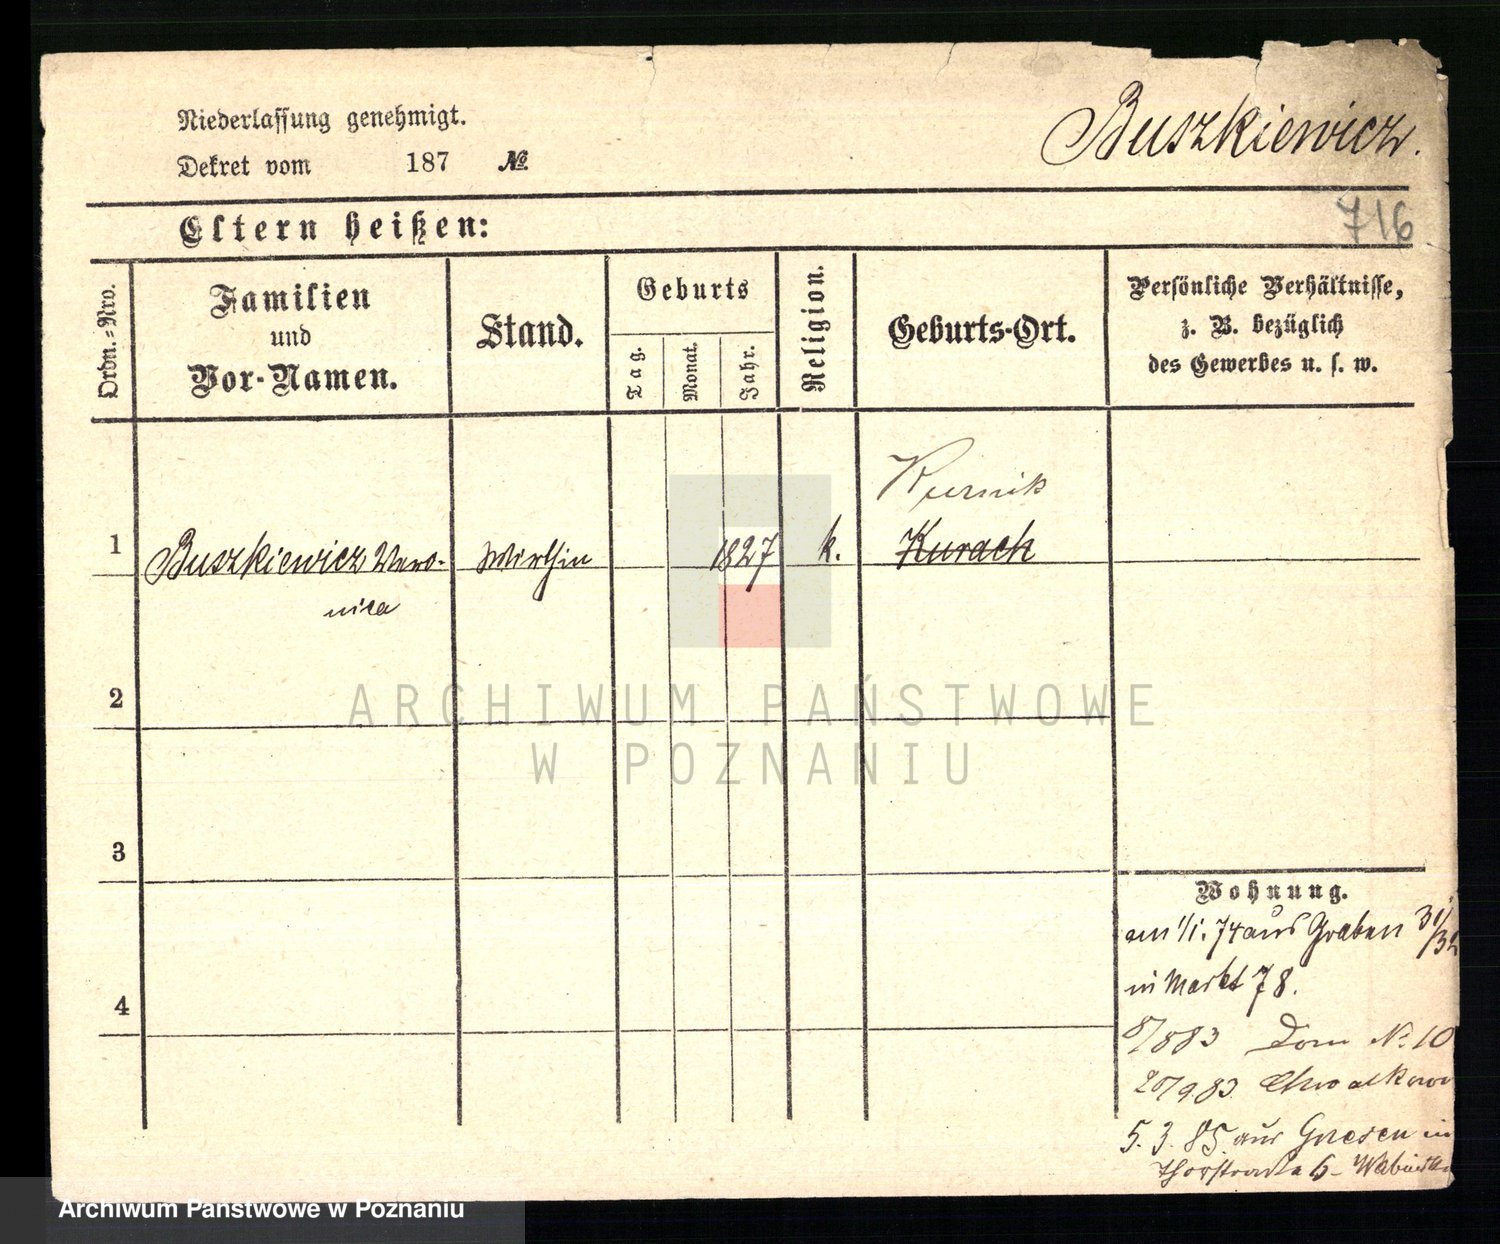 Niederlassung genehmigt.
Dekret vom 187 №
Buszkiewicz.
716
Eltern heißen:
Ordn.-Nro.
Familien
und
Vor-Namen.
Stand.
Geburts
Tag.
Monat.
Jahr.
Religion.
Geburts-Ort.
Persönliche Verhältnisse,
z. B. bezüglich
des Gewerbes u. s. w.
Kurnik
1 Buszkiewicz Vero- Wirthin 1827 k. Kurach
nica
2
ARCHIWUM PAŃSTWOWE
W POZNANIU
3
Wohnung.
am 1/1. 74 aus Graben 31/32
in Markt 78.
4
8/8 83 Dom No 10
20/9 83
5. 3. 85. aus Gnesen in
6
Archiwum Państwowe w Poznaniu